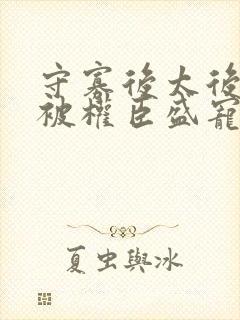 守寡後太後
被權臣盛寵
夏虫與冰